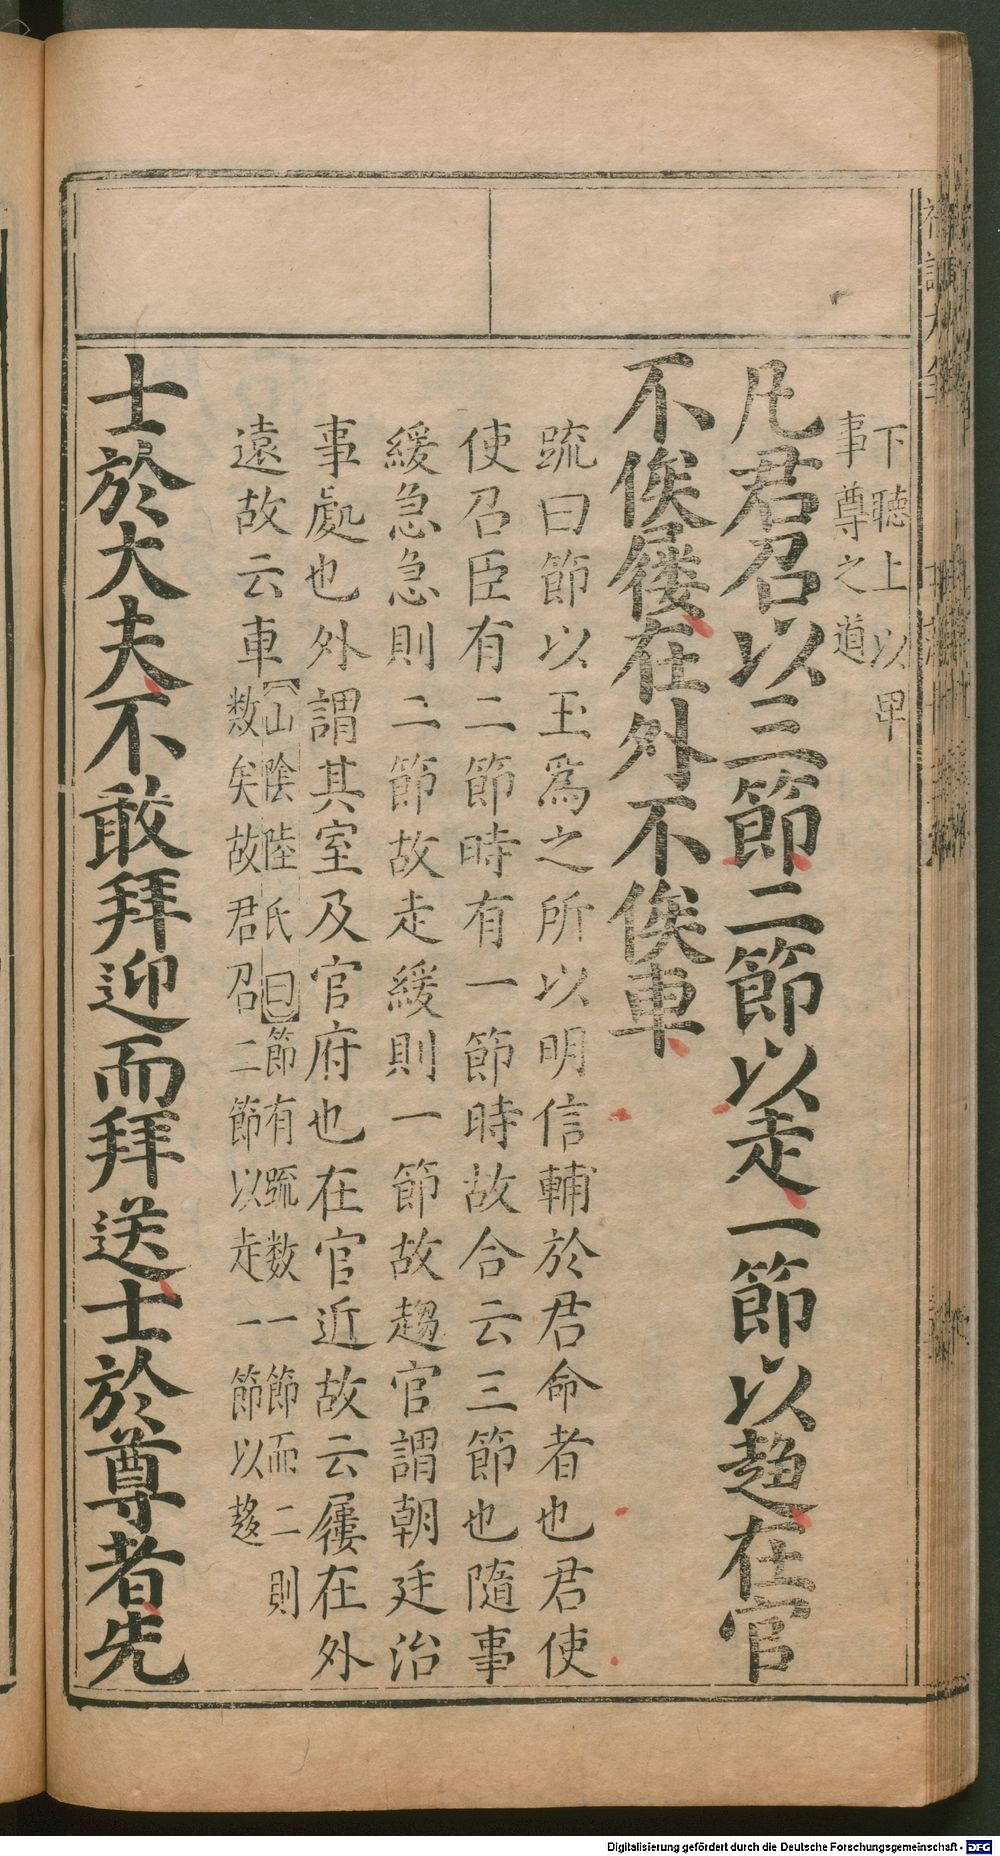 下聽上以卑
事尊之道
凡君召以三節二節以走一節以趨在官
不俟屨在外不俟車
疏曰節以玉爲之所以明信輔於君命者也君使
使召臣有二節時有一節時故合云三節也隨事
緩急急則二節故走緩則一節故趨官謂朝廷治
事處也外謂其室及官府也在官近故云屨在外
遠故云車
山陰陸氏曰節有䟽数一節而二則
数矣故君召二節以走一節以趍
士於大夫不敢拜迎而拜送士於尊者先
Digitalisierung gefördert durch die Deutsche Forschungsgemeinschaft - DFG